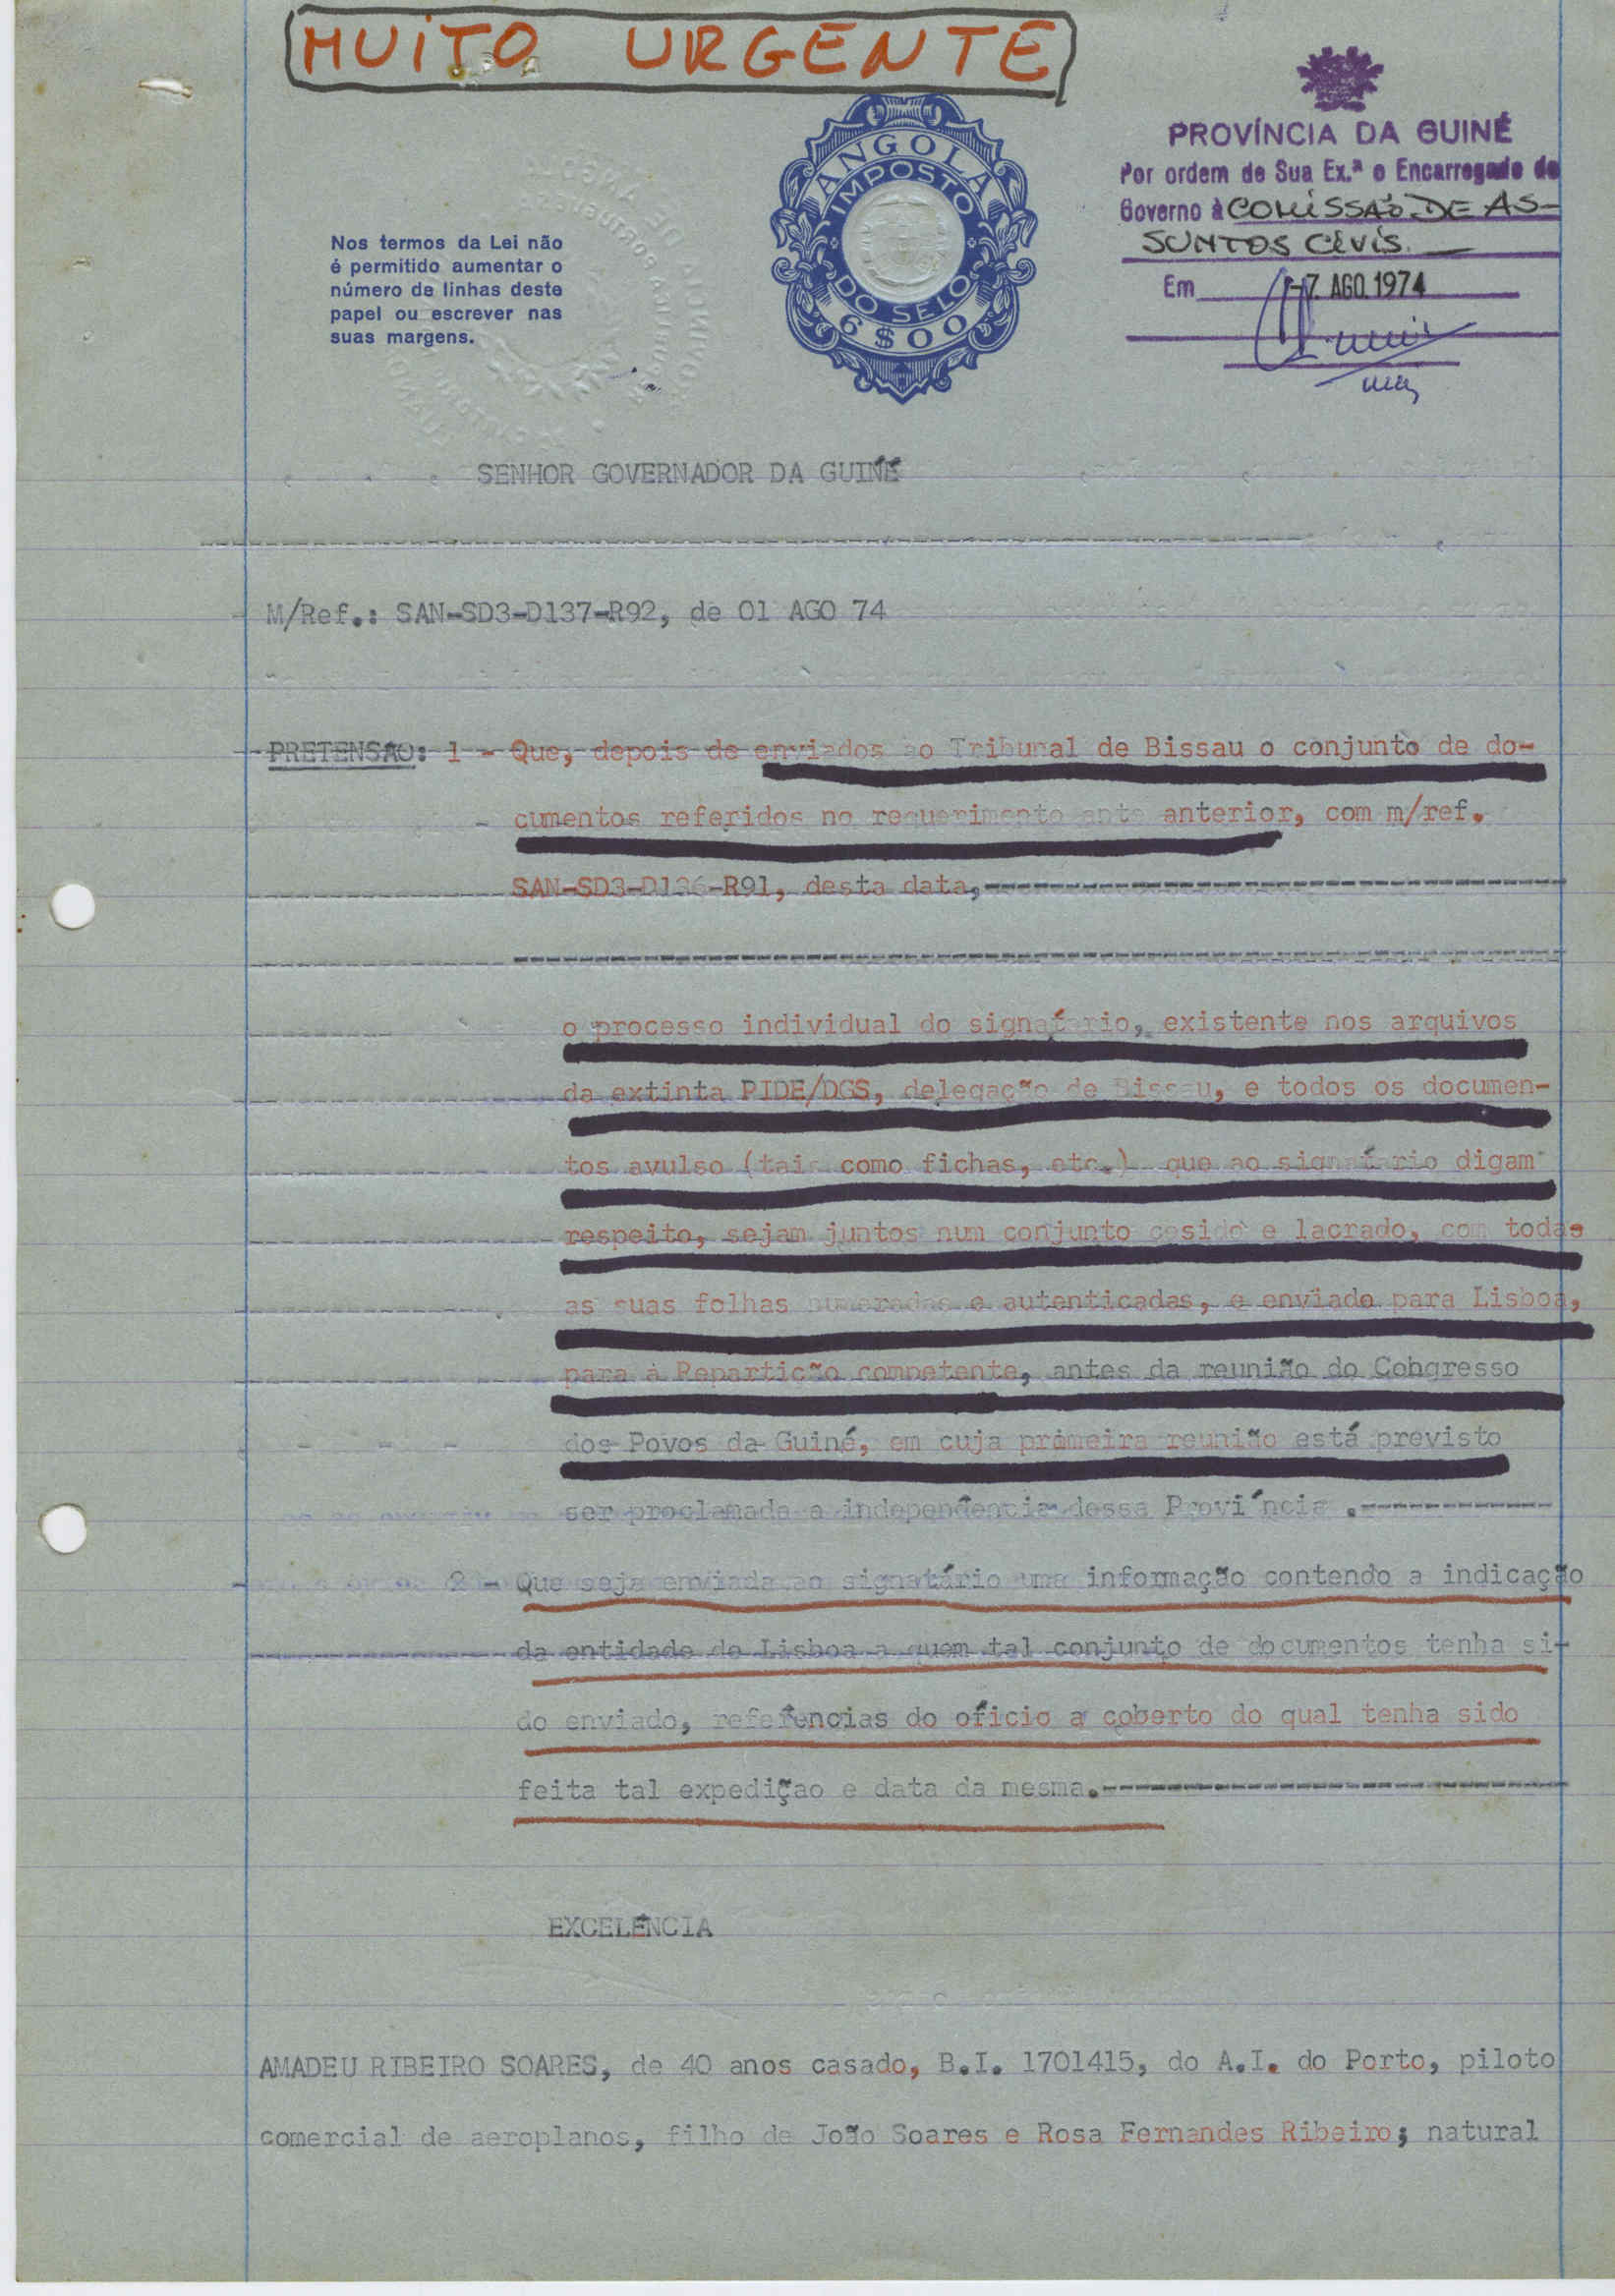 MUITO URGENTE
ANGOLA
IMPOSTO
DO SELO
6$00
PROVÍNCIA DA GUINÉ
Por ordem de Sua Ex.ª o Encarregado do
Governo à COMISSÃO DE AS-
SUNTOS CÍVIS
Em 7. AGO. 1974
Nos termos da Lei não
é permitido aumentar o
número de linhas deste
papel ou escrever nas
suas margens.
SENHOR GOVERNADOR DA GUINÉ
M/Ref.: SAN-SD3-D137-R92, de 01 AGO 74
PRETENSAO: 1 - Que, depois de enviados ao Tribunal de Bissau o conjunto de do-
cumentos referidos no requerimento ante anterior, com m/ref.
SAN-SD3-D136-R91, desta data,
o processo individual do signatário, existente nos arquivos
da extinta PIDE/DGS, delegação de Bissau, e todos os documen-
tos avulso (tais como fichas, etc.) que ao signatário digam
respeito, sejam juntos num conjunto cosido e lacrado, com todas
as suas folhas numeradas e autenticadas, e enviado para Lisboa,
para à Repartição competente, antes da reunião do Cohgresso
dos Povos da Guiné, em cuja primeira reunião está previsto
ser proclamada a independência dessa Província .
2 - Que seja enviada ao signatário uma informação contendo a indicação
da entidade de Lisboa a quem tal conjunto de documentos tenha si-
do enviado, referências do ofício a coberto do qual tenha sido
feita tal expediçao e data da mesma.
EXCELÊNCIA
AMADEU RIBEIRO SOARES, de 40 anos casado, B.I. 1701415, do A.I. do Porto, piloto
comercial de aeroplanos, filho de João Soares e Rosa Fernandes Ribeiro; natural